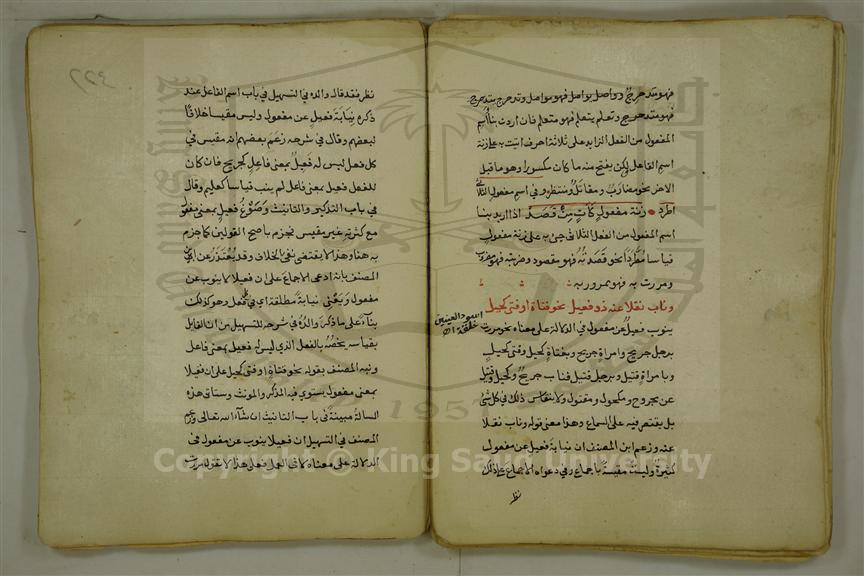 فهو متدحرج وواصل يواصل فهو مواصل وتدحرج يتدحرج
فهو متدحرج وتعلم يتعلم فهو متعلم فان اردت بناء اسم
المفعول من الفعل الزايد على ثلاثة احرف اتيت به على زنة
اسم الفاعل لكن يفتح منه ما كان مكسورا وهو ما قبل
الاخر نحو مضارب ومقاتل ومنتظر وفي اسم مفعول الثلاثي
اطرد زنة مفعول كآت من قصد اذا اريد بنا
اسم المفعول من الفعل الثلاثي جئ به على زنة مفعول
قياسا مطردا نحو قصدته فهو مقصود وضربته فهو مضروب
ومررت به فهو ممرور به
وناب نقلا عنه ذو فعيل نحو فتاة او فتى كحيل
ينوب فعيل عن مفعول في الدلالة على معناه نحو مررت
برجل جريح وامراة جريح وبفتاة كحيل وفتى كحيل
وبامراة قتيل وبرجل قتيل فناب جريح وكحيل وقتيل
عن مجروح ومكحول ومقتول ولا ينقاس ذلك في كل شئ
بل يقتصر فيه على السماع وهذا معنى قوله وناب نقلا
عنه وزعم ابن المصنف ان نيابة فعيل عن مفعول
كثيرة وليست مقيسة باجماع وفي دعواه الاجماع على ذلك
نظر
اسود العينين
خلقة
٤٢٢
نظر فقد قال والده في التسهيل في باب اسم الفاعل عند
ذكره نيابة فعيل عن مفعول وليس مقيسا خلافا
لبعضهم وقال في شرحه زعم بعضهم انه مقيس في
كل فعل ليس له فعيل بمعنى فاعل كجريح فان كان
للفعل فعيل بمعنى فاعل لم ينب قياسا كعليم وقال
في باب التذكير والتانيث وصوغ فعيل بمعنى مفعول
مع كثرته غير مقيس فجزم باصح القولين كما جزم
به هنا وهذا لا يقتضي نفي الخلاف وقد يعتذر عن ابن
المصنف بانه ادعى الاجماع على ان فعيلا لا ينوب عن
مفعول ويعني نيابة مطلقة اي في فعل وهو كذلك
بناء على ما ذكره والده في شرحه للتسهيل من ان القايل
بقياسه يخصه بالفعل الذي ليس له فعيل بمعنى فاعل
ونبه المصنف بقوله نحو فتاة او فتى كحيل على ان فعيلا
بمعنى مفعول يستوي فيه المذكر والمونث وستاتي هذه
المسالة مبينة في باب التانيث ان شاء الله تعالى وزعم
المصنف في التسهيل ان فعيلا ينوب عن مفعول في
الدلالة على معناه لا في العمل فعلى هذا لا تقول مررت
Copyright © King Saud University
1957